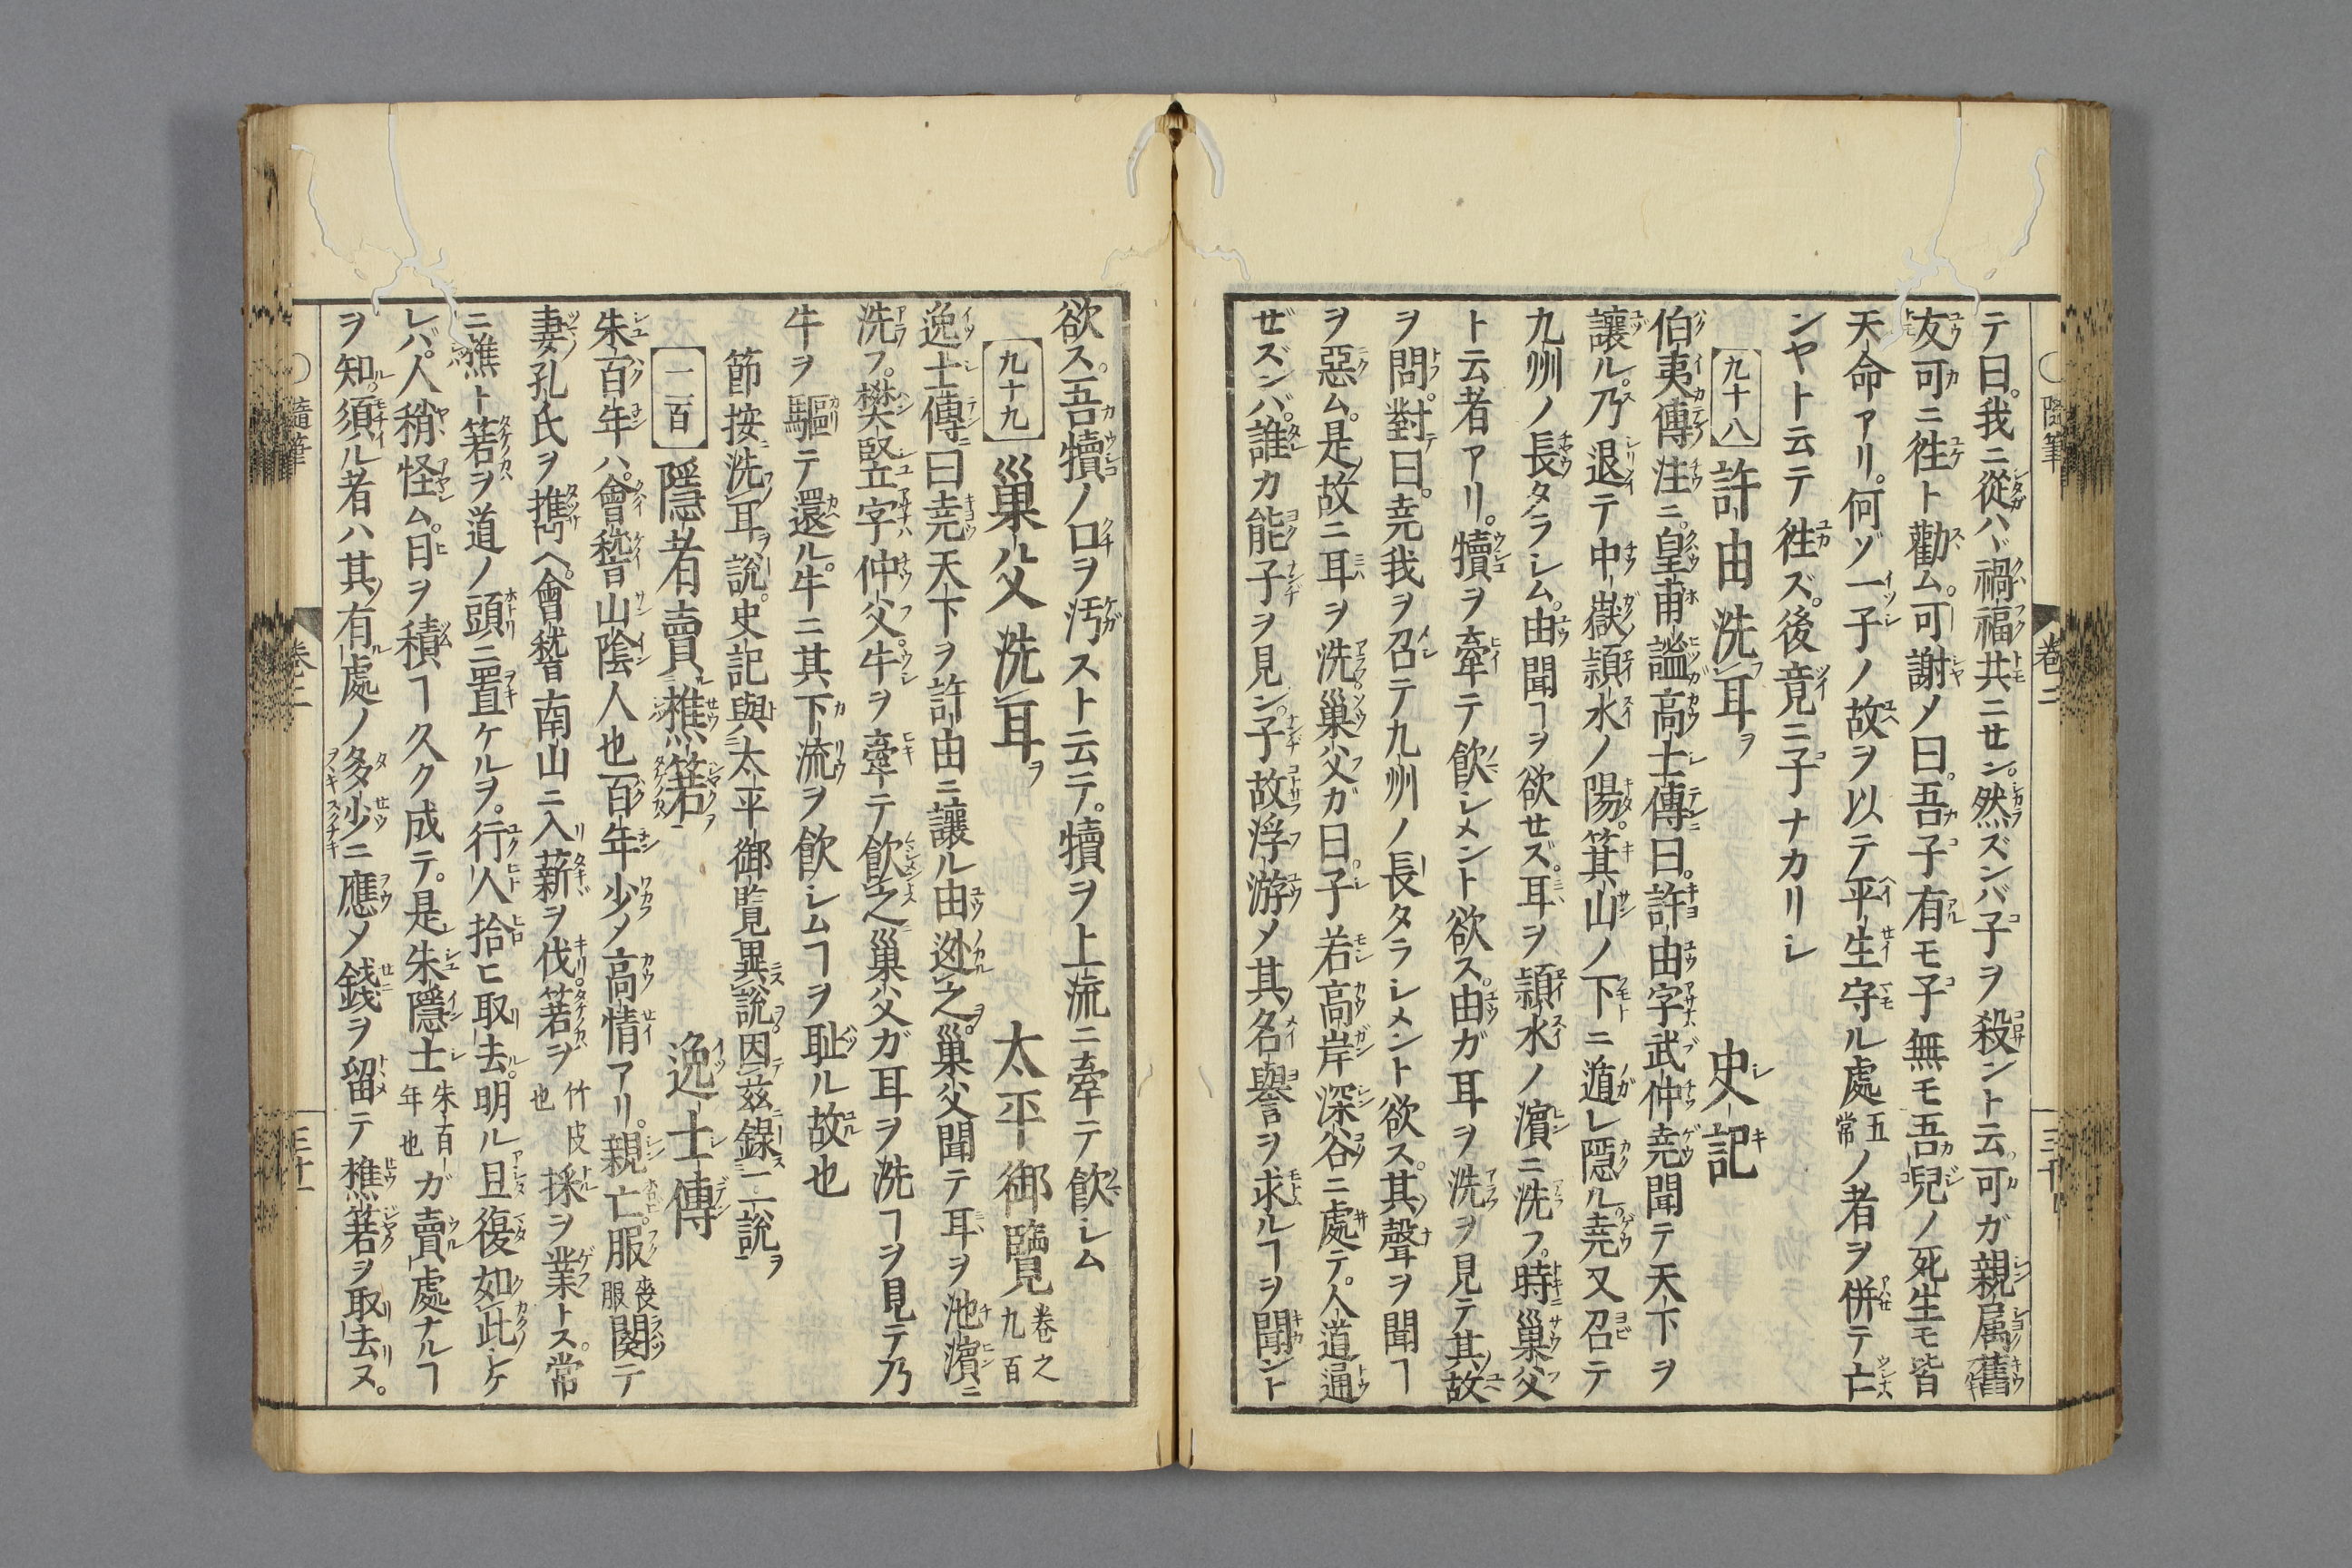 テ曰。我ニ從ハヾ禍福共ニせン。然ズンバ子ヲ殺ント云。可ガ親属舊
友可ニ徃ト勸ム。可謝メ曰。吾子有モ子無モ吾兒ノ死生モ皆
天命アリ。何ゾ一子ノ故ヲ以テ平生守ル處五常ノ者ヲ併テ亡
ンヤト云テ徃ズ。後竟ニ子ナカリシ
九十八 許由洗耳ヲ 史記
伯夷傳注ニ。皇甫謐高士傳曰。許由字武仲堯聞テ天下ヲ
讓ル。乃退テ中嶽頴水ノ陽。箕山ノ下ニ遁レ隠ル。堯又召テ
九州ノ長タラシム。由聞ヿヲ欲せズ。耳ヲ頴水ノ濵ニ洗フ。時ニ巢父
ト云者アリ。犢ヲ牽テ飲シメント欲ス。由ガ耳ヲ洗ヲ見テ其故
ヲ問。對曰。堯我ヲ召テ九州ノ長タラシメント欲ス。其聲ヲ聞ヿ
ヲ惡ム。是故ニ耳ヲ洗。巢父ガ曰子若高岸深谷ニ處テ。人道通
ぜズンバ。誰カ能子ヲ見ン。子故浮游メ其名譽ヲ求ルヿヲ聞ント
欲ス。吾犢ノ口ヲ汚スト云テ。犢ヲ上流ニ牽テ飲シム
九十九 巢父洗耳ヲ 太平御覽 卷之九百
逸士傳曰堯天下ヲ許由ニ讓ル由迯之。巢父聞テ耳ヲ池濵ニ
洗フ。樊堅字仲父。牛ヲ牽テ飲之巢父ガ耳ヲ洗ヿヲ見テ乃
牛ヲ驅テ還ル。牛ニ其下流ヲ飲シムヿヲ耻ル故也
節按洗耳ヲ說。史記與太平御覽異說。因茲錄二說ヲ
一百 隱者賣樵箬 逸士傳
朱百年ハ。會稽山陰人也百年少メ高情アリ。親亡服喪服闋テ
妻孔氏ヲ攜ヘ。會稽南山ニ入薪ヲ伐箬ヲ竹皮也採ヲ業トス。常
ニ樵ト箬ヲ道ノ頭ニ置ケルヲ。行人拾ヒ取去。明ル旦復如此ケ
レバ。人稍怪ム。日ヲ積ヿ久ク成テ。是朱隱士朱百年也ガ賣處ナルヿ
ヲ知。須ル者ハ其有處ノ多少ニ應メ錢ヲ留テ樵箬ヲ取去ヌ。
隨筆 卷二
隨筆 卷二